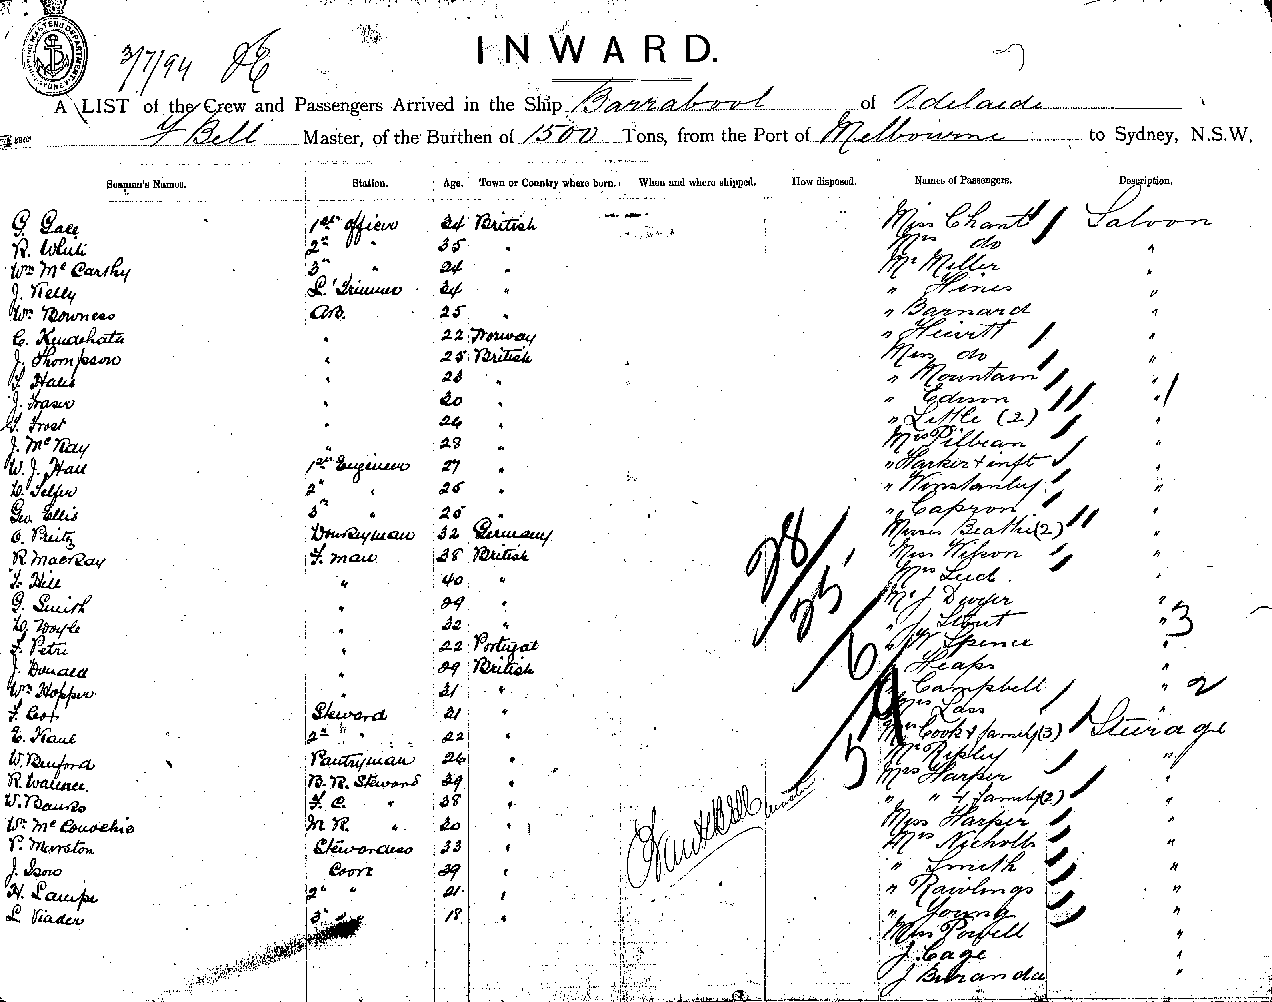 INWARD.
3/7/94
A LIST of the Crew and Passengers Arrived in the Ship Barrabool of Adelaide
Bell Master, of the Burthen of 1500 Tons, from the Port of Melbourne to Sydney, N.S.W.
Seaman's Names. Station. Age. Town or Country where born. When and where shipped. How disposed. Names of Passengers. Description.
G. Gale 1st officer 34 British Miss Chant Saloon
R. White 2nd " 35 " Mrs do "
Wm McCarthy 3rd " 24 " Mr Miller "
J. Kelly L. Trimmer 34 " " Hines "
Wm Bowness A.B. 25 " " Barnard "
22 Norway " Hewitt "
J. Thompson " 25 British Miss do "
" 23 " " Mountain "
J. Fraser " 20 " " Edison "
Frost " 24 " " Little (2) "
J. McKay " 28 " Mrs Pilbean "
W. J. Hall 1st Engineer 27 " " Harker & inft "
Telfer 2nd " 25 " " Winstanley "
Geo. Ellis 3rd " 25 " " Capron "
Donkeyman 32 Germany Misses Beathe (2) "
R MacKay F. man 38 British Miss Wilson "
Hill " 40 " Mrs "
G. Smith " 29 " Mr J Dwyer "
" 32 " " J Stout "
Petri " 22 Portugal " Spence "
J. Donald " 29 British " Heaps "
Wm Hopper " 31 " " Campbell "
Steward 21 " Mrs Lass "
2nd " 22 " Mrs Cook & family (3) Sturage
W. Binford Pantryman 26 " Mr Ripley "
R. Wallace B. R. Steward 39 " Mrs Harper "
W. Banks F. C. " 38 " " " & family (2) "
M R. " 20 " Miss Harper "
P. Marston Stewardess 33 " Mrs Nicholls "
J. Cook 39 " " Smith "
H. 2nd " 21 " " Rawlings "
L. Viader 3rd " 18 " " Young "
Miss Powell "
J. Cage "
J "
28
25
6
59
3
2